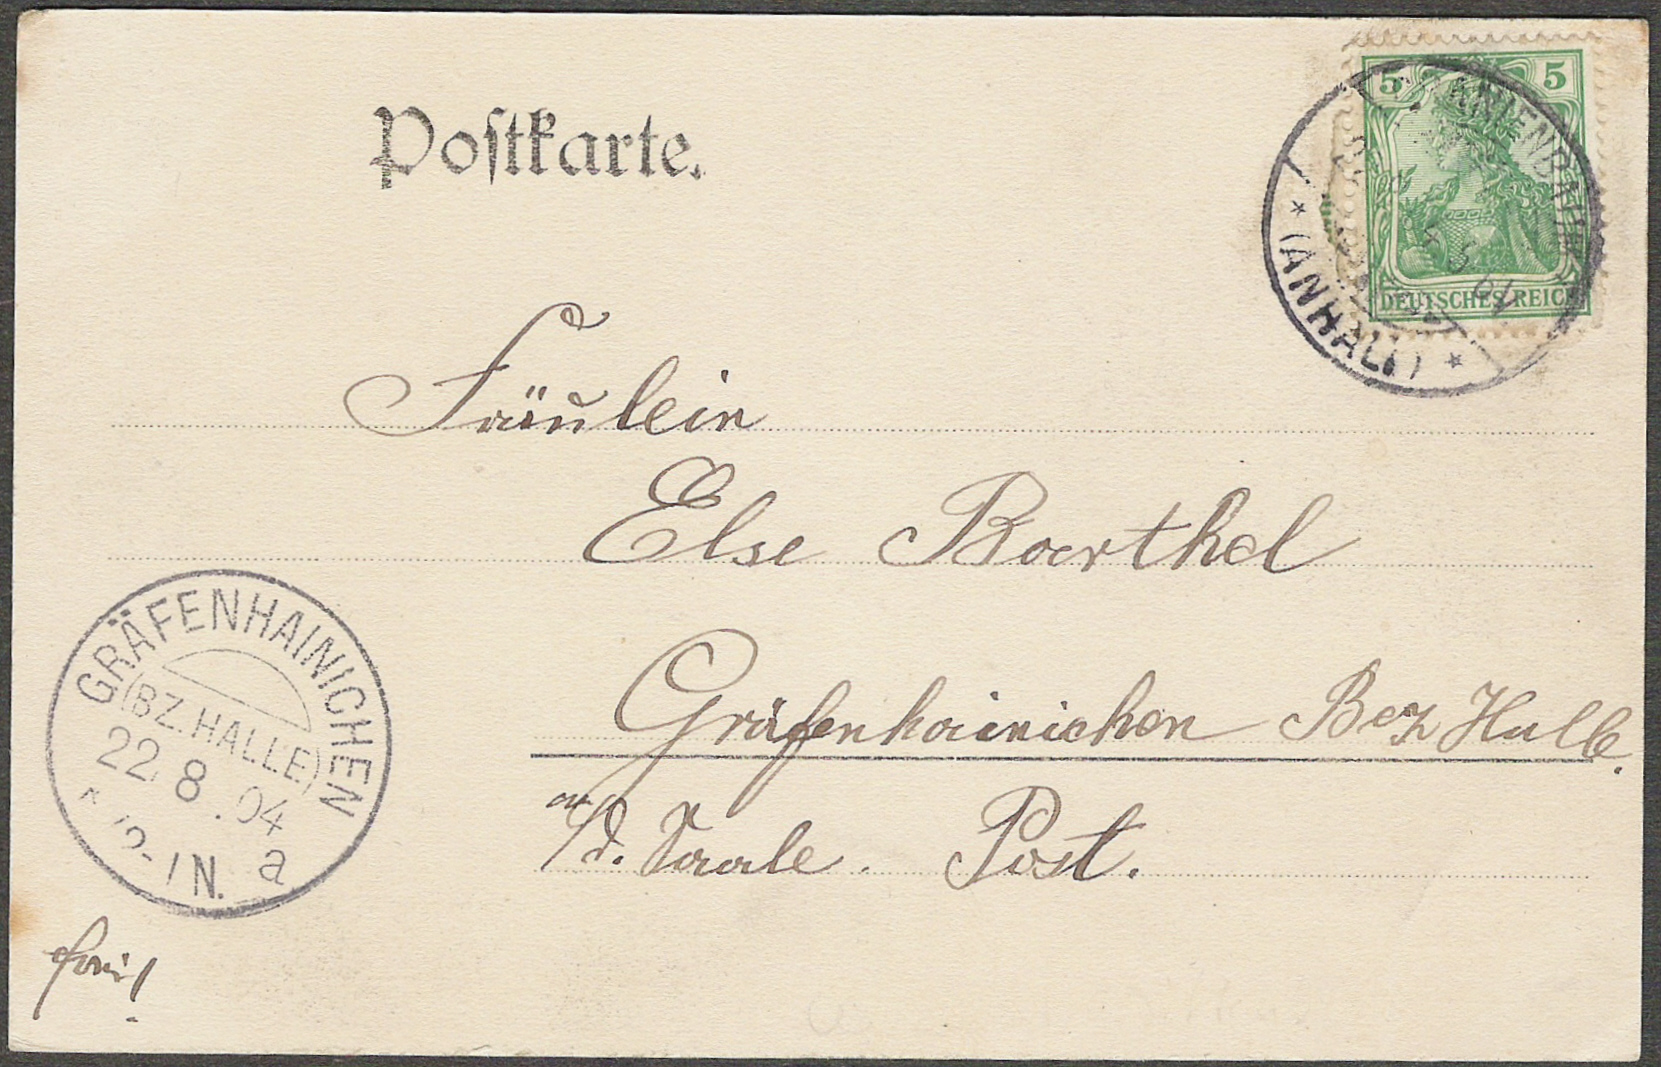 Postkarte.
5 5
DEUTSCHES REICH
* (ANHALT) *
Fräulein
Else Barthel
Gräfenhainichen Bez Halle.
a/d. Saale. Post.
GRÄFENHAINICHEN
(BZ. HALLE)
22 8.04
* 12-1N. a